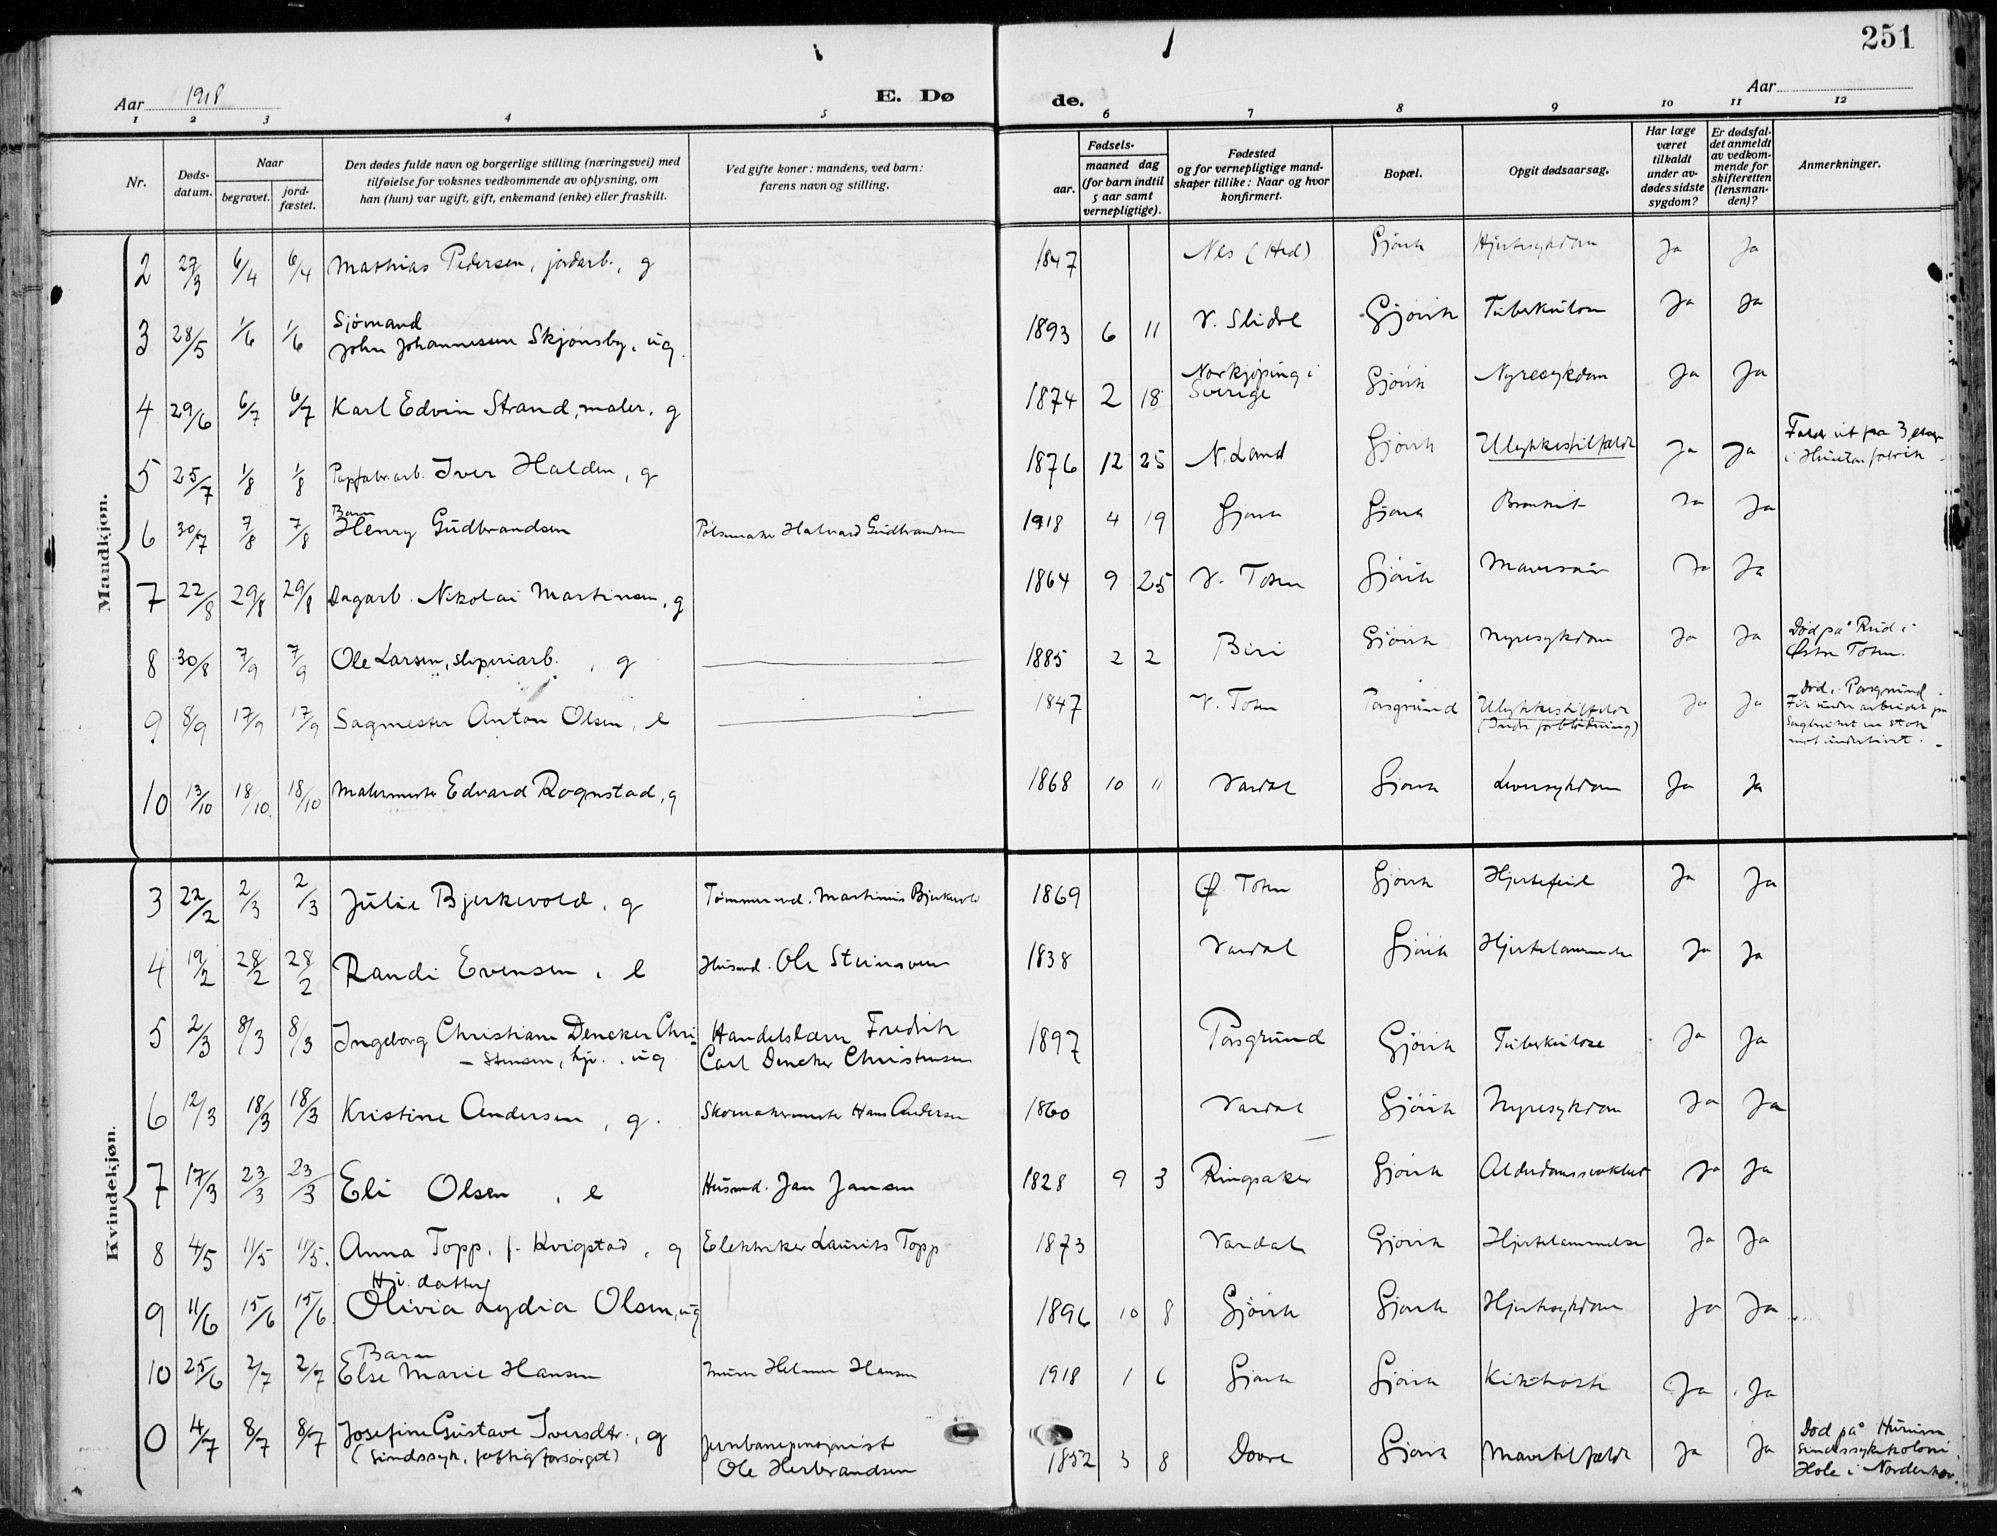 251
Aar 1918 E. Dø de. Aar
1 2 3 4 5 6 7 8 9 10 11 12
Nr. Døds-datum. Naar begravet. jord-fæstet. Den dødes fulde navn og borgerlige stilling (næringsvei) med tilføielse for voksnes vedkommende av oplysning, om han (hun) var ugift, gift, enkemand (enke) eller fraskilt. Ved gifte koner: mandens, ved barn: farens navn og stilling. Fødsels- aar. maaned dag (for barn indtil 5 aar samt vernepligtige). Fødested og for vernepligtige mand-skaper tillike: Naar og hvor konfirmert. Bopæl. Opgit dødsaarsag. Har læge været tilkaldt under av-dødes sidste sygdom? Er dødsfal-det anmeldt av vedkom-mende for skifteretten (lensman-den)? Anmerkninger.
Mandkjøn.
2 27/3 6/4 6/4 Mathias Pedersen, jordarb., g 1847 Nes (Hed) Gjövik Hjertesykdom Ja Ja
3 28/5 1/6 1/6 Sjømand
John Johannessen Skjønsby, ug. 1893 6 11 V. Slidre Gjövik Tuberkulose Ja Ja
4 29/6 6/7 6/7 Karl Edvin Strand, maler, g 1874 2 18 Norkjöping i Sverige Gjövik Nyresykdom Ja Ja
5 25/7 1/8 1/8 Papfabr.arb. Iver Halden, g 1876 12 25 N. Land Gjövik Ulykkestilfælde Ja Ja Faldt ut fra 3 etage
i Hunton fabrik
6 30/7 7/8 7/8 Barn
Henry Gudbrandsen Pølsemaker Halvard Gudbrandsen 1918 4 19 Gjøvik Gjøvik Bronkit Ja Ja
7 22/8 29/8 29/8 Dagarb. Nikolai Martinsen, g 1864 9 25 V. Toten Gjövik Mavesaar Ja Ja
8 30/8 7/9 7/9 Ole Larsen, sliperiarb., g 1885 2 2 Biri Gjövik Nyresykdom Ja Ja Död på Rud i
Østre Toten.
9 8/9 17/9 17/9 Sagmester Anton Olsen, e 1847 V. Toten Porsgrund Ulykkestilfælde
(Indre forblødning) Ja Ja Död i Porsgrund
Fik under arbeidet på
Sagbruket en stok
mot underlivet.
10 13/10 18/10 18/10 Malermester Edvard Rognstad, g 1868 10 11 Vardal Gjövik Leversykdom Ja Ja
Kvindekjøn.
3 22/2 2/3 2/3 Julie Bjerkevold, g Tømmermd. Martinius Bjerkevold 1869 Ø Toten Gjövik Hjertefeil Ja Ja
4 19/2 28/2 28/2 Randi Evensen, e Husmd. Ole Steinsveen 1838 Vardal Gjövik Hjertelammelse Ja Ja
5 2/3 8/3 8/3 Ingeborg Christiane Deneker Chri-
- stensen, hjv., ug Handelslærer Fredrik
Carl Deneker Christensen 1897 Porsgrund Gjövik Tuberkulose Ja Ja
6 12/3 18/3 18/3 Kristine Andersen, g. Skomakermester Hans Andersen 1860 Vardal Gjövik Nyresykdom Ja Ja
7 17/3 23/3 23/3 Eli Olsen, e Husmd. Jan Jansen 1828 9 3 Ringsaker Gjövik Alderdomssvakhet Ja Ja
8 4/5 11/5 11/5. Anna Topp, f. Kvigstad, g Elektriker Laurits Topp 1873 Vardal Gjövik Hjertelammelse Ja Ja
9 11/6 15/6 15/6 Hjv. datter
Olivia Lydia Olsen, ug 1896 10 8 Gjövik Gjövik Hjertesykdom Ja Ja
10 25/6 2/7 2/7 Barn
Else Marie Hansen Murer Helmer Hansen 1918 1 6 Gjövik Gjövik Kikhoste Ja Ja
0 4/7 8/7 8/7 Josefine Gustave Iversdtr., g
(Sindssyk, fattigforsörget) Jernbanepensjonist
Ole Herbrandsen 1852 3 8 Dovre Gjövik Mavetilfælde Ja Ja Död på
Sindssykekoloni
Hole i Norderhov.